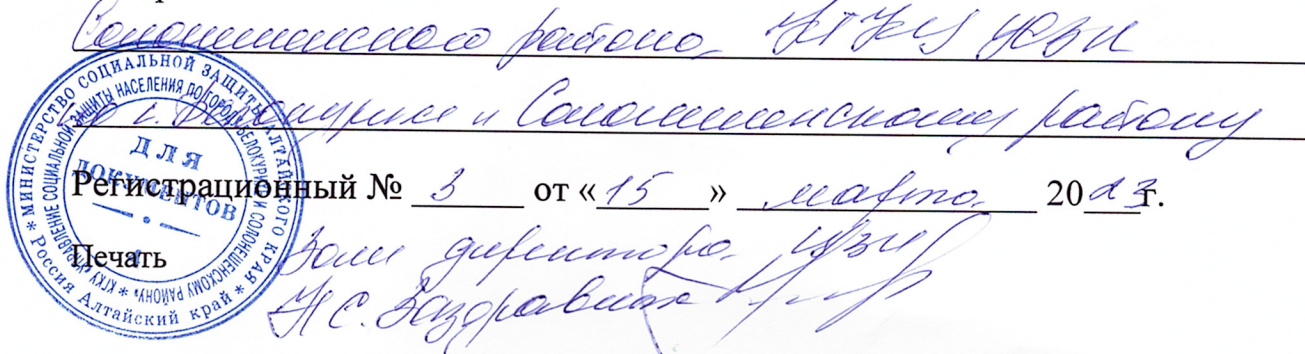 Солонешенского района, КГКУ УСЗН
по г. Белокурихе и Солонешенскому району
Регистрационный № 3 от «15» марта 2023г.
Печать
Зам директора УСЗН
Н.С. Заздравных
МИНИСТЕРСТВО СОЦИАЛЬНОЙ ЗАЩИТЫ АЛТАЙСКОГО КРАЯ * Россия Алтайский край *
КГКУ УПРАВЛЕНИЕ СОЦИАЛЬНОЙ ЗАЩИТЫ НАСЕЛЕНИЯ ПО ГОРОДУ БЕЛОКУРИХЕ И СОЛОНЕШЕНСКОМУ РАЙОНУ *
ДЛЯ
ДОКУМЕНТОВ